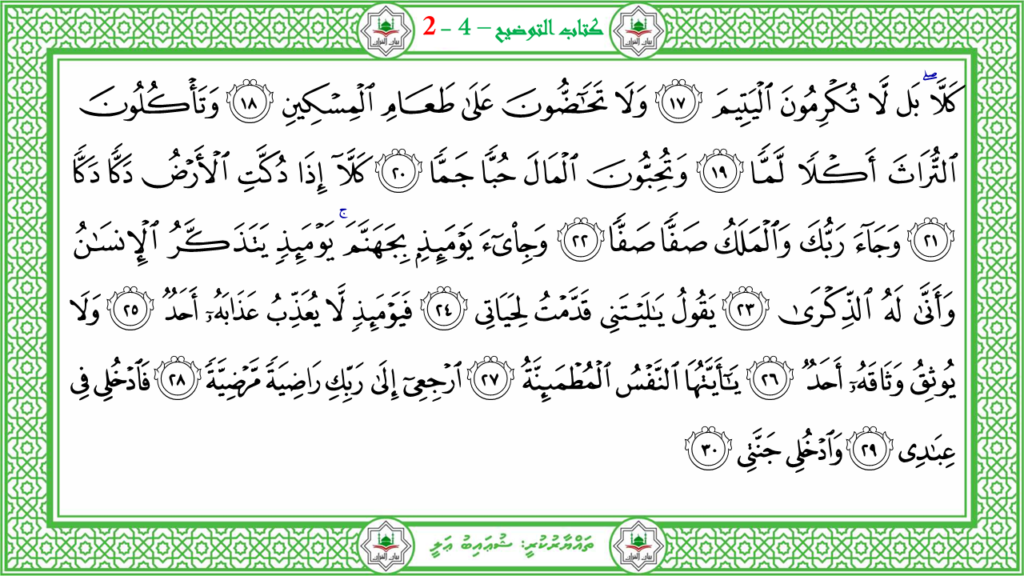 كتاب التوضيح – 4 - 2
كَلَّاۖ بَل لَّا تُكْرِمُونَ ٱلْيَتِيمَ ١٧ وَلَا تَحَٰٓضُّونَ عَلَىٰ طَعَامِ ٱلْمِسْكِينِ ١٨ وَتَأْكُلُونَ
ٱلتُّرَاثَ أَكْلًا لَّمًّا ١٩ وَتُحِبُّونَ ٱلْمَالَ حُبًّا جَمًّا ٢٠ كَلَّآ إِذَا دُكَّتِ ٱلْأَرْضُ دَكًّا دَكًّا
٢١ وَجَآءَ رَبُّكَ وَٱلْمَلَكُ صَفًّا صَفًّا ٢٢ وَجِا۟ىٓءَ يَوْمَئِذٍۭ بِجَهَنَّمَۚ يَوْمَئِذٍ يَتَذَكَّرُ ٱلْإِنسَٰنُ
وَأَنَّىٰ لَهُ ٱلذِّكْرَىٰ ٢٣ يَقُولُ يَٰلَيْتَنِى قَدَّمْتُ لِحَيَاتِى ٢٤ فَيَوْمَئِذٍ لَّا يُعَذِّبُ عَذَابَهُۥٓ أَحَدٌ ٢٥ وَلَا
يُوثِقُ وَثَاقَهُۥٓ أَحَدٌ ٢٦ يَٰٓأَيَّتُهَا ٱلنَّفْسُ ٱلْمُطْمَئِنَّةُ ٢٧ ٱرْجِعِىٓ إِلَىٰ رَبِّكِ رَاضِيَةً مَّرْضِيَّةً ٢٨ فَٱدْخُلِى فِى
عِبَٰدِى ٢٩ وَٱدْخُلِى جَنَّتِى ٣٠
ތައްޔާރުކުރީ: ޝުޢައިބު ޢަލީ